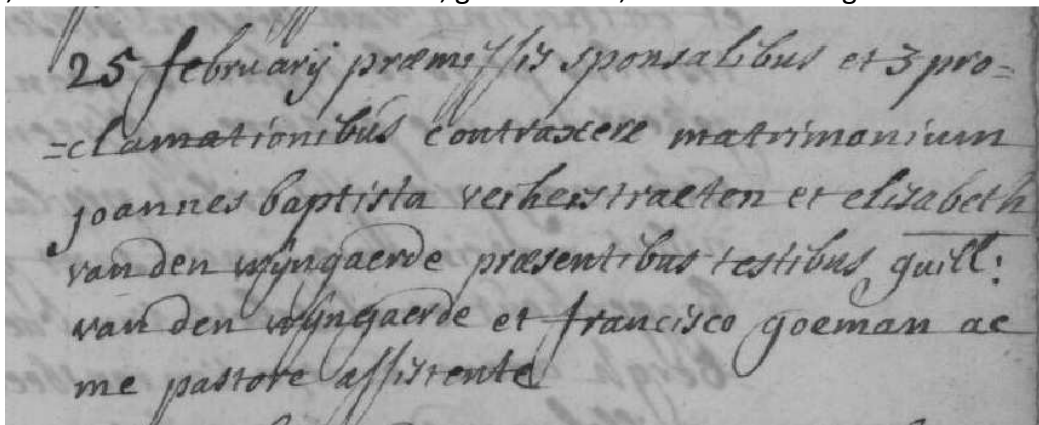 25 februarij præmissis sponsalibus et 3 pro=
=clamationibus contraxere matrimonium
joannes baptista verherstraeten et elisabeth
van den wijngaerde præsentibus testibus guill:
van den wijngaerde et francisco goeman ac
me pastore assistente